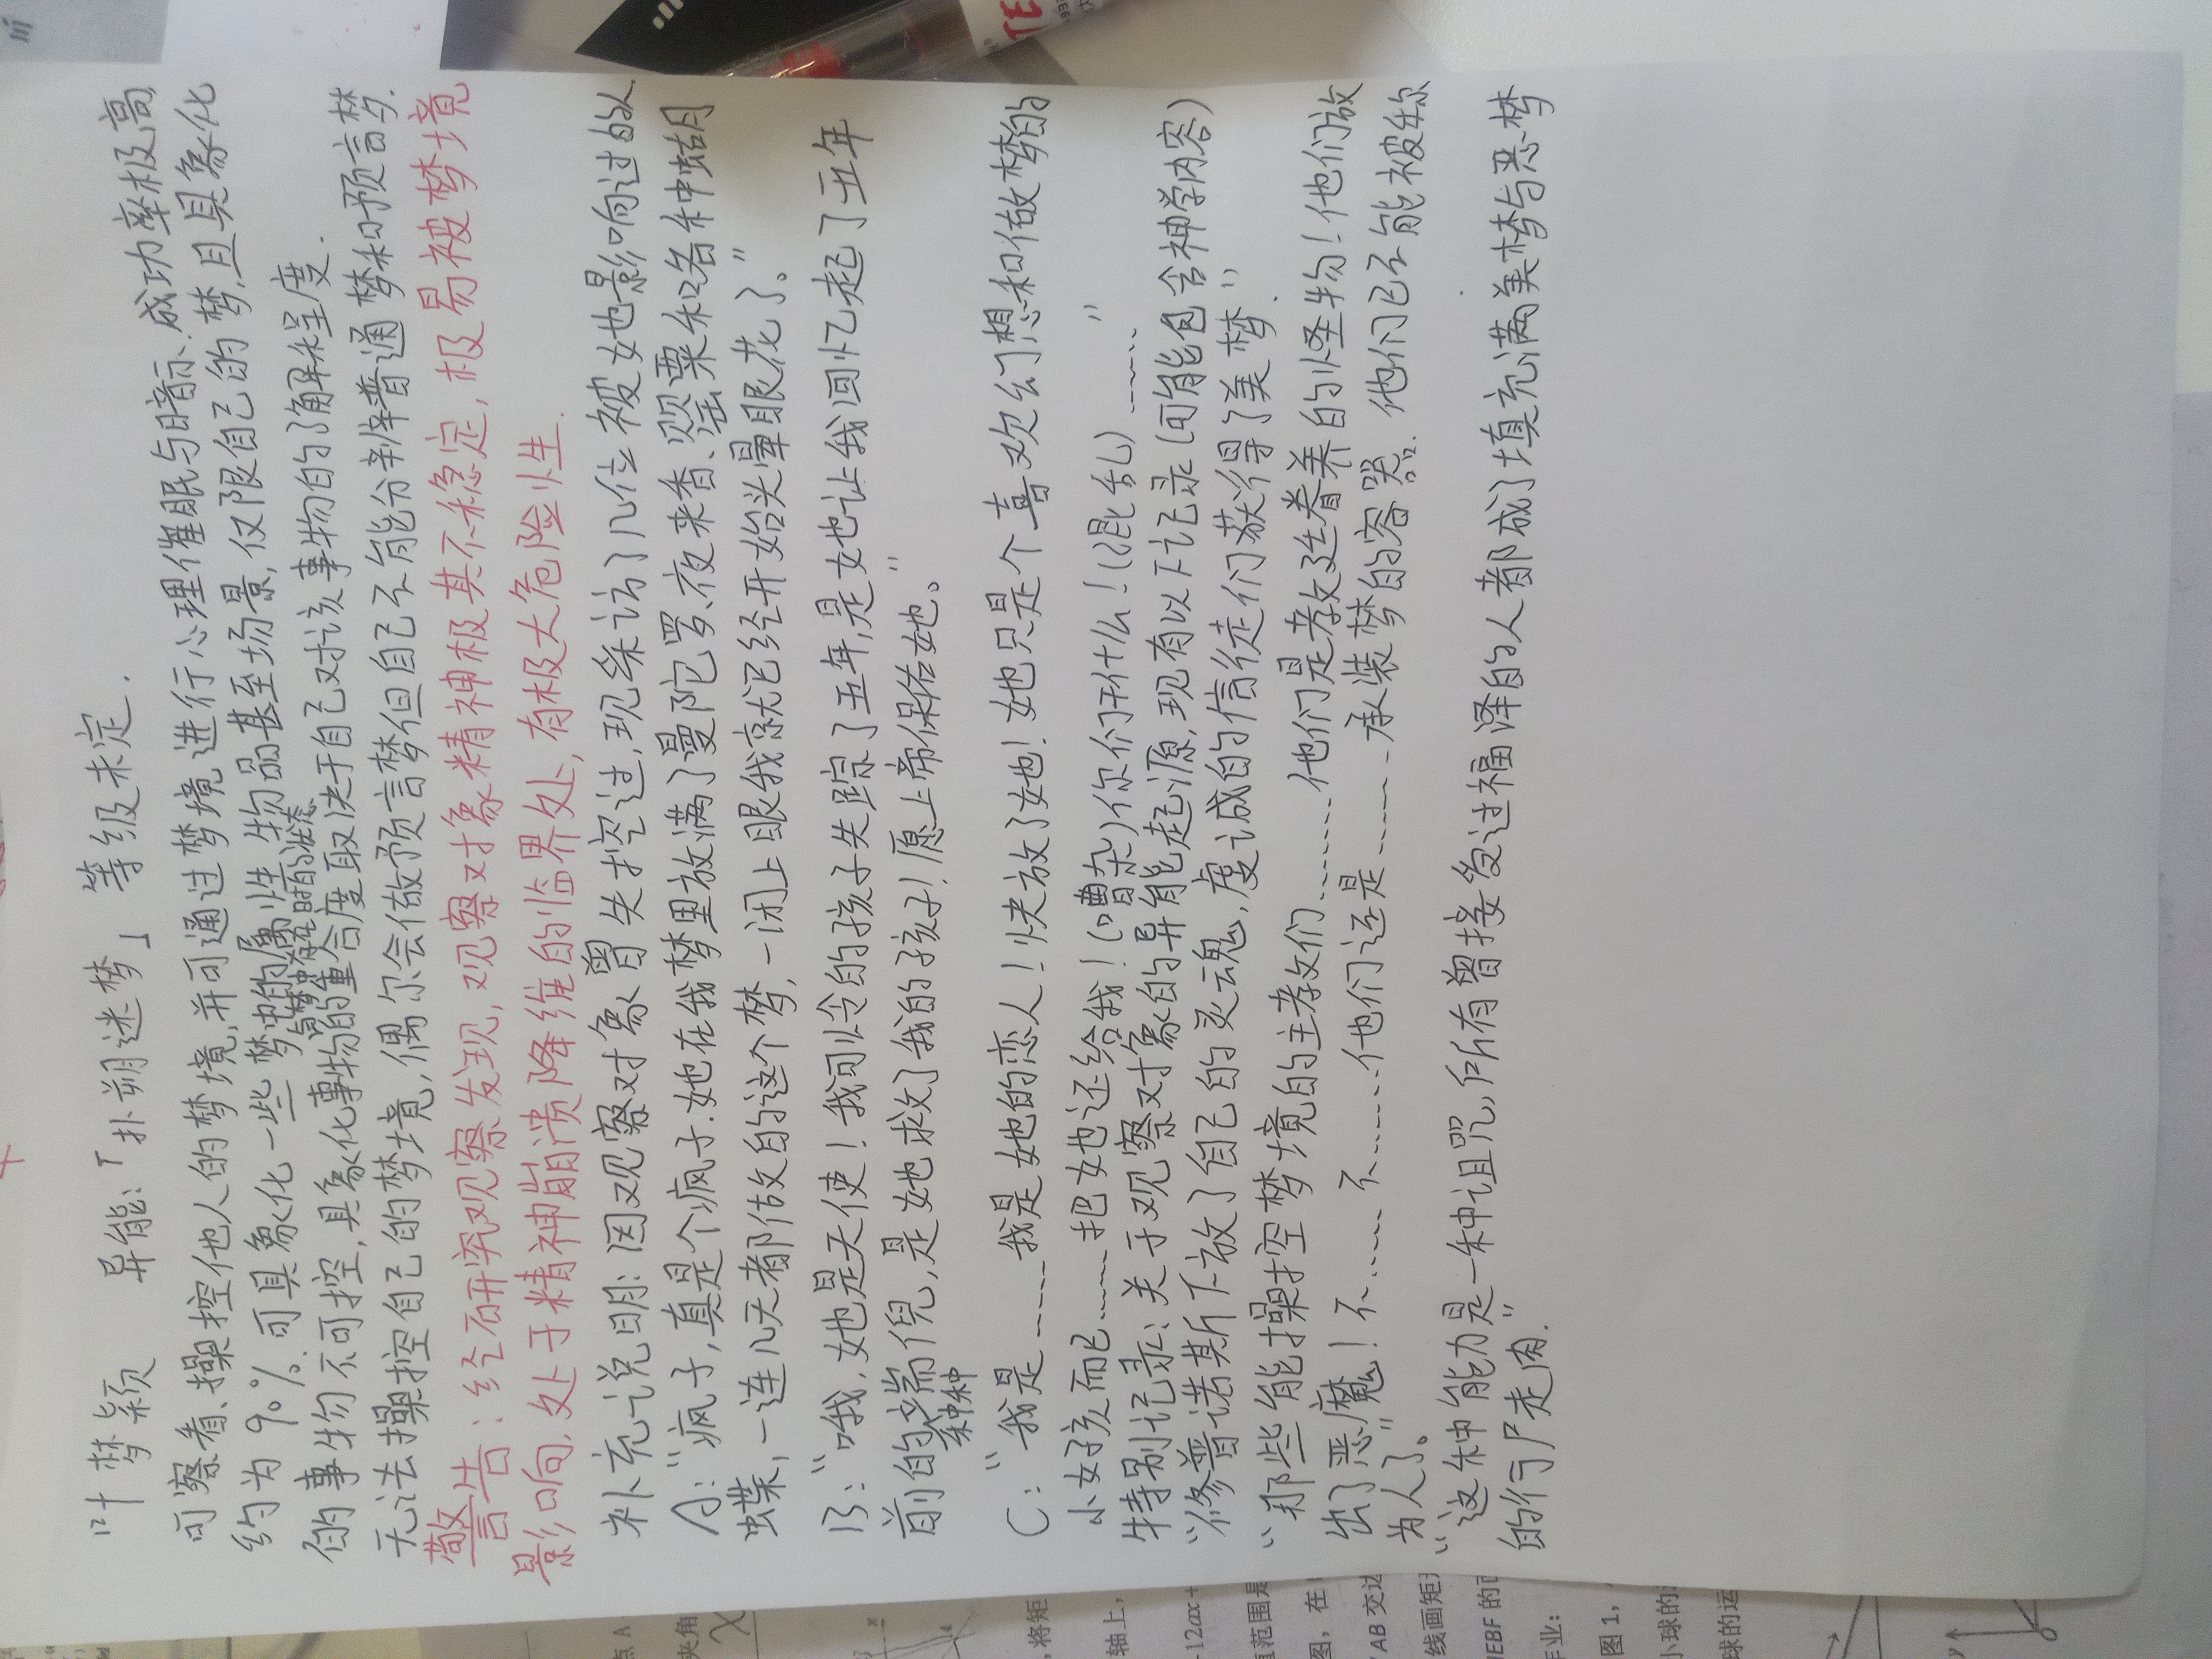 叶梦颖 异能:「扑朔迷梦」 等级未定.
可察看、操控他人的梦境,并可通过梦境进行心理催眠与暗示.成功率极高,
约为90%.可具象化一些梦中的属性物品甚至场景,仅限自己的梦,且具象化
与梦中存在时的状态
的事物不可控,具象化事物的重合度取决于自己对该事物的了解程度.
无法操控自己的梦境,偶尔会做预言梦但自己不能分辨普通梦和预言梦.
警告:经研究观察发现,观察对象精神极其不稳定,极易被梦境
影响,处于精神崩溃降维的临界处,有极大危险性.
补充说明:因观察对象曾失控过,现采访了几位被她影响过的人
A:“疯子,真是个疯子.她在我梦里放满了曼陀罗、夜来香、罂粟和各种蝴
蝶,一连几天都做的这个梦,一闭上眼我就已经开始头晕眼花了。”
B:“哦,她是天使!我可怜的孩子失踪了五年,是她让我回忆起了五年
前的种种端倪,是她救了我的孩子!愿上帝保佑她。”
C:“我是……我是她的恋人!快放了她!她只是个喜欢幻想和做梦的
小女孩而已……把她还给我!(嘈杂)你们干什么!(混乱)……”
特别记录:关于观察对象的异能起源,现有以下记录(可能包含神学内容)
“修普诺斯下放了自己的灵魂,虔诚的信徒们获得了美梦.”
“那些能操控梦境的主教们……他们是教廷眷养的怪物!他们放
出了恶魔!不……不……他们还是……承装梦的容器.他们已不能被称
为人了。”
“这种能力是一种诅咒,所有曾接受过福泽的人都成了填充满美梦与恶梦
的行尸走肉.”
TE
点A
夹角
,将矩
轴上,
-12ax+
值范围是
图,在
AB交边
线画矩形
EBF的面
作业:
图1,
小球的运
球的运
y
x